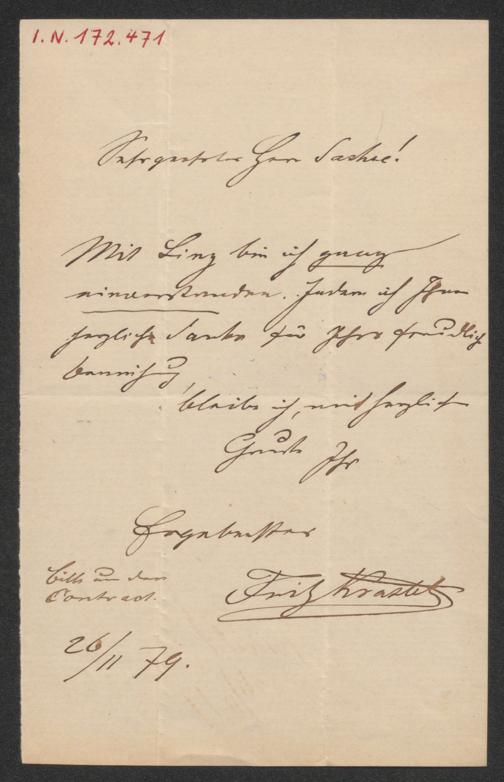 I.N. 172.471
Sehrgeehrter Herr Sachse!
Mit Linz bin ich ganz
einverstanden. Indem ich Ihnen
herzlich danke für Ihre freundlich
Bemühung,
bleibe ich, mit herzlich
Gruße Ihr
Ergebenster
Fritz Krastel
bitte um den
Contract.
26/11 79.